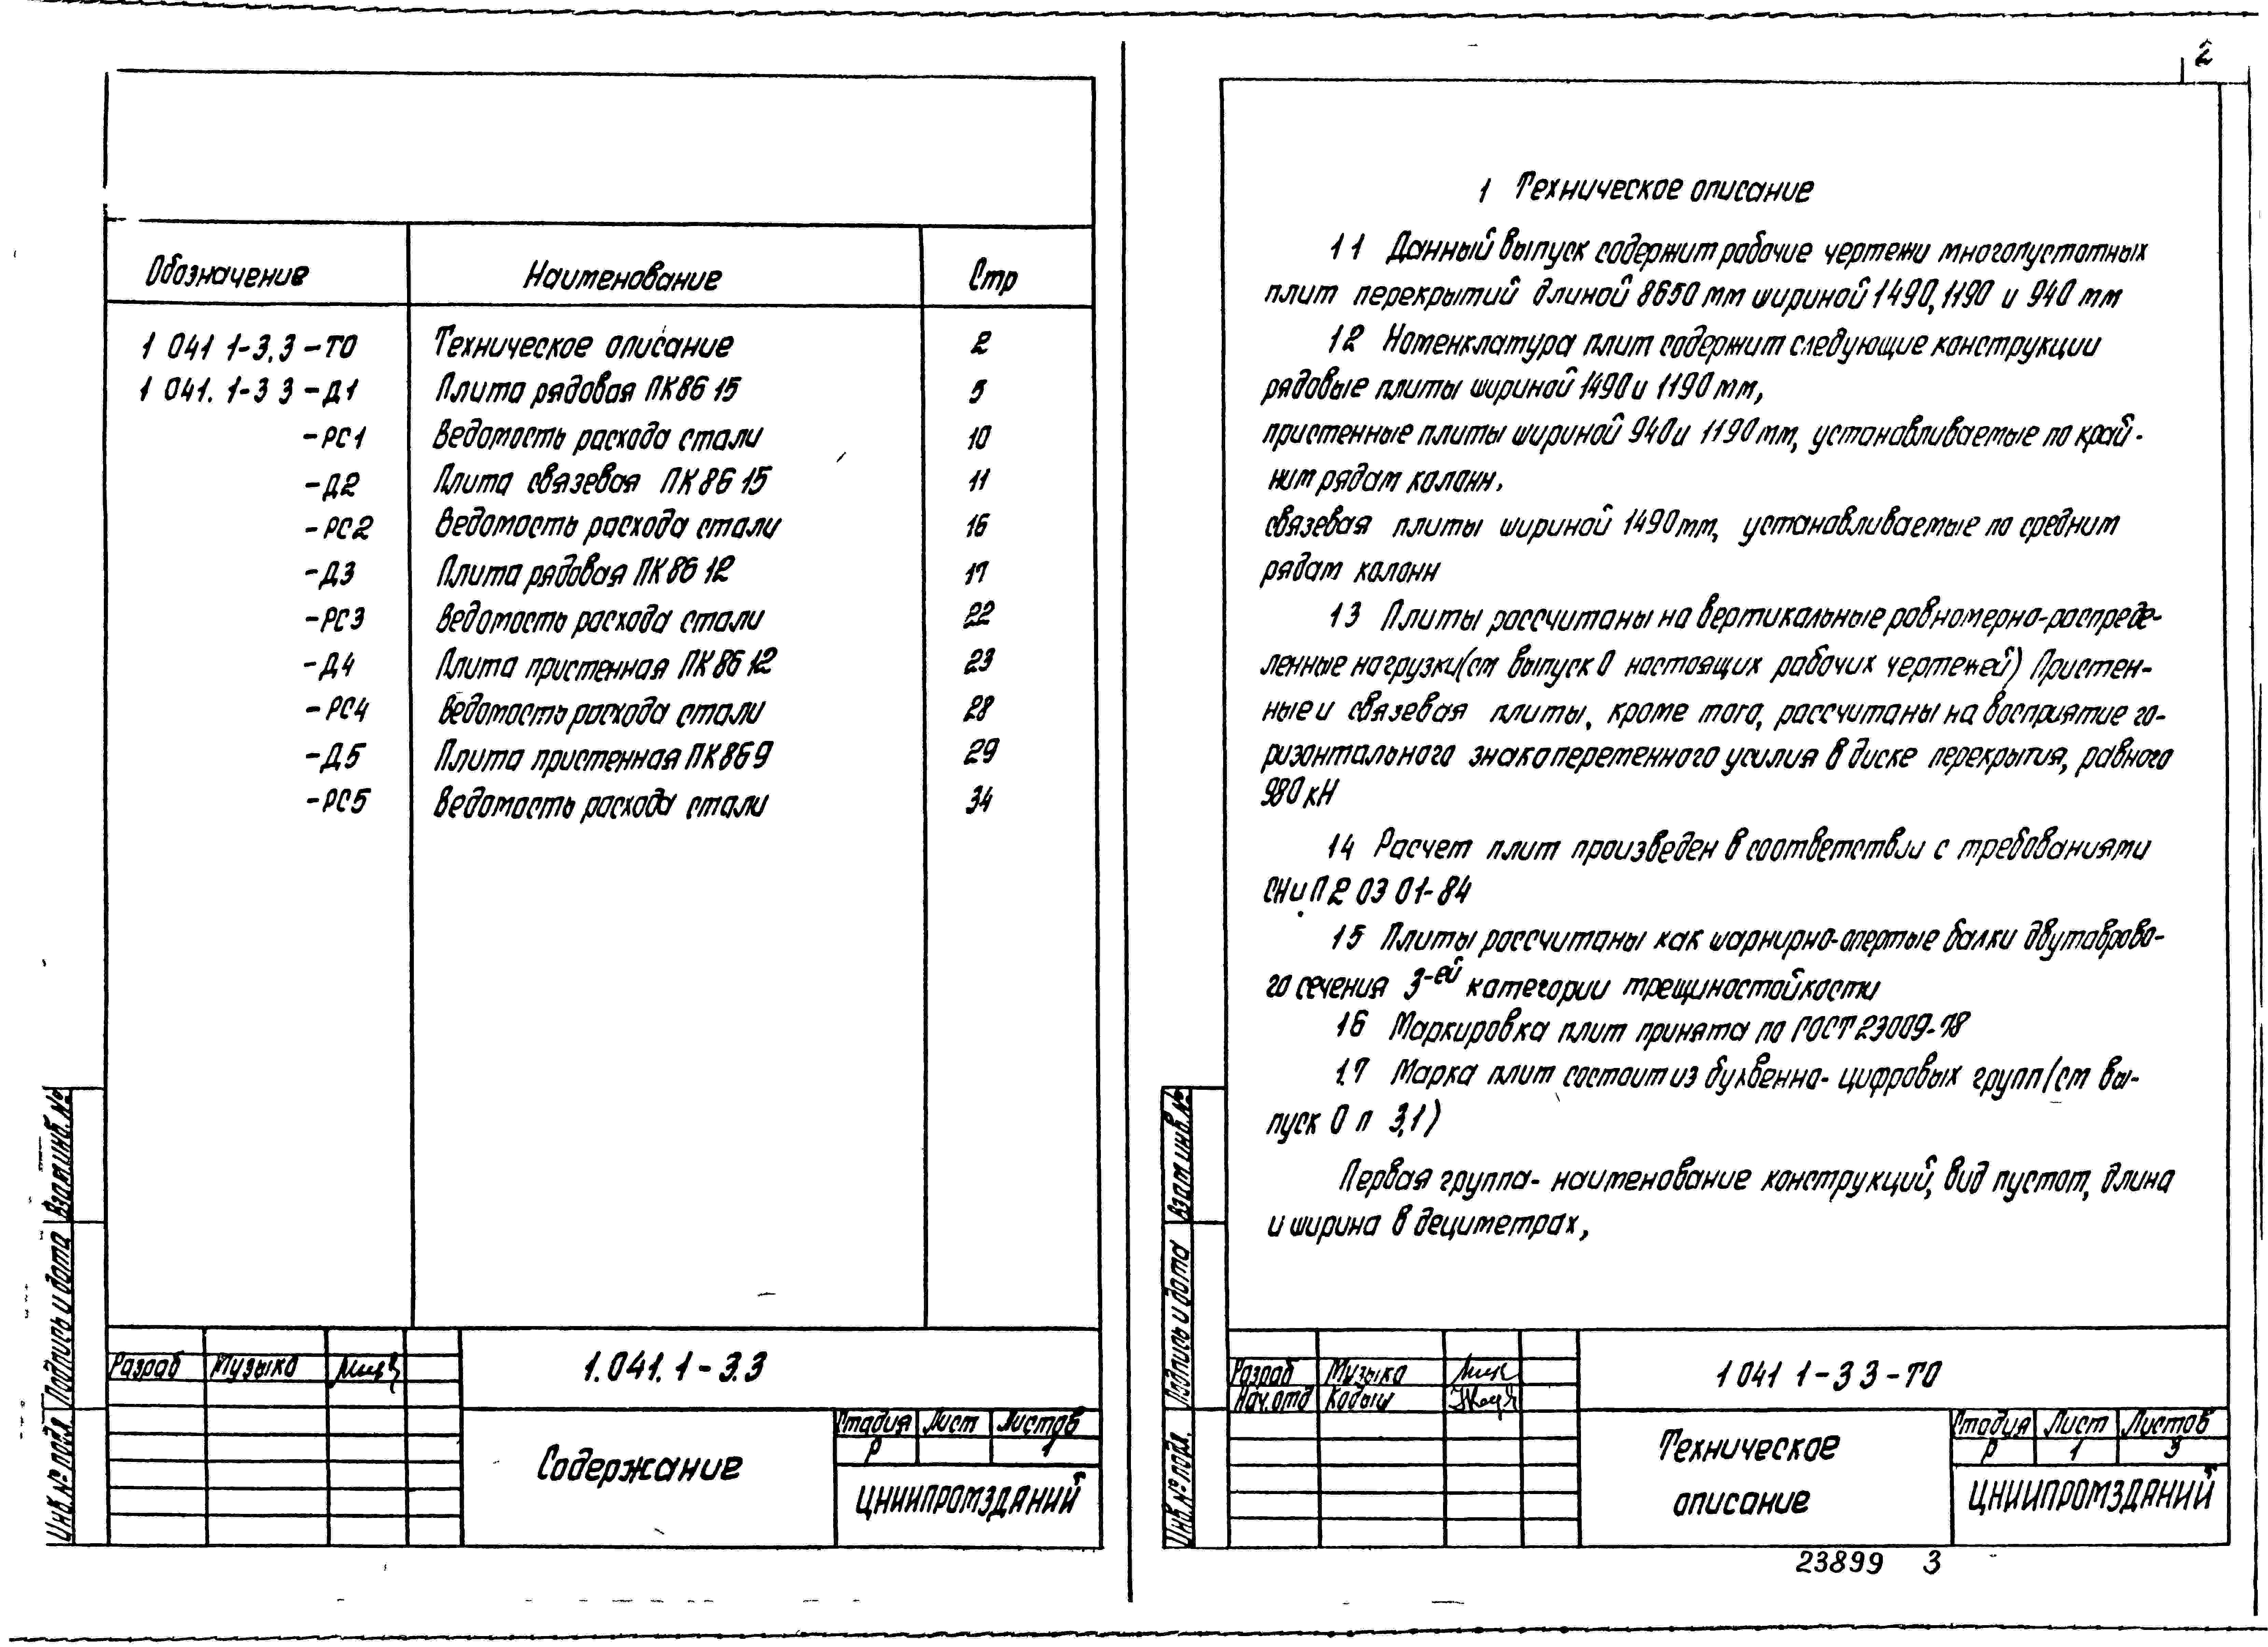 Обозначение Наименование Стр
1 041 1-3.3-ТО Техническое описание 2
1 041. 1-3 3-Д1 Плита рядовая ПК86 15 5
-РС1 Ведомость расхода стали 10
-Д2 Плита связевая ПК 86 15 11
-РС2 Ведомость расхода стали 16
-Д3 Плита рядовая ПК 86 12 17
-РС3 Ведомость расхода стали 22
-Д4 Плита пристенная ПК 86 12 23
-РС4 Ведомость расхода стали 28
-Д5 Плита пристенная ПК 86 9 29
-РС5 Ведомость расхода стали 34
Взам инв. №
Подпись и дата
Инв. № подл.
Разраб Музыка
1.041. 1-3.3
Содержание
Стадия Лист Листов
Р 1
ЦНИИПРОМЗДАНИЙ
2
1 Техническое описание
1 1 Данный выпуск содержит рабочие чертежи многопустотных
плит перекрытий длиной 8650 мм шириной 1490, 1190 и 940 мм
1 2 Номенклатура плит содержит следующие конструкции
рядовые плиты шириной 1490 и 1190 мм,
пристенные плиты шириной 940 и 1190 мм, устанавливаемые по край-
ним рядам колонн,
связевая плиты шириной 1490 мм, устанавливаемые по средним
рядам колонн
1 3 Плиты рассчитаны на вертикальные равномерно-распреде-
ленные нагрузки (см выпуск 0 настоящих рабочих чертежей) Пристен-
ные и связевая плиты, кроме того, рассчитаны на восприятие го-
ризонтального знакопеременного усилия в диске перекрытия, равного
980 кН
1 4 Расчет плит произведен в соответствии с требованиями
СНиП 2 03 01-84
1 5 Плиты рассчитаны как шарнирно-опертые балки двутаврово-
го сечения 3-ей категории трещиностойкости
1 6 Маркировка плит принята по ГОСТ 23009-78
1.7 Марка плит состоит из буквенно-цифровых групп (см вы-
пуск 0 п 3.1)
Первая группа- наименование конструкций, вид пустот, длина
и ширина в дециметрах,
Взам инв. №
Подпись и дата
Инв. № подл.
Разраб Музыка
Нач. отд Кодыш
1 041 1-3 3-ТО
Техническое
описание
Стадия Лист Листов
Р 1 3
ЦНИИПРОМЗДАНИЙ
23899 3